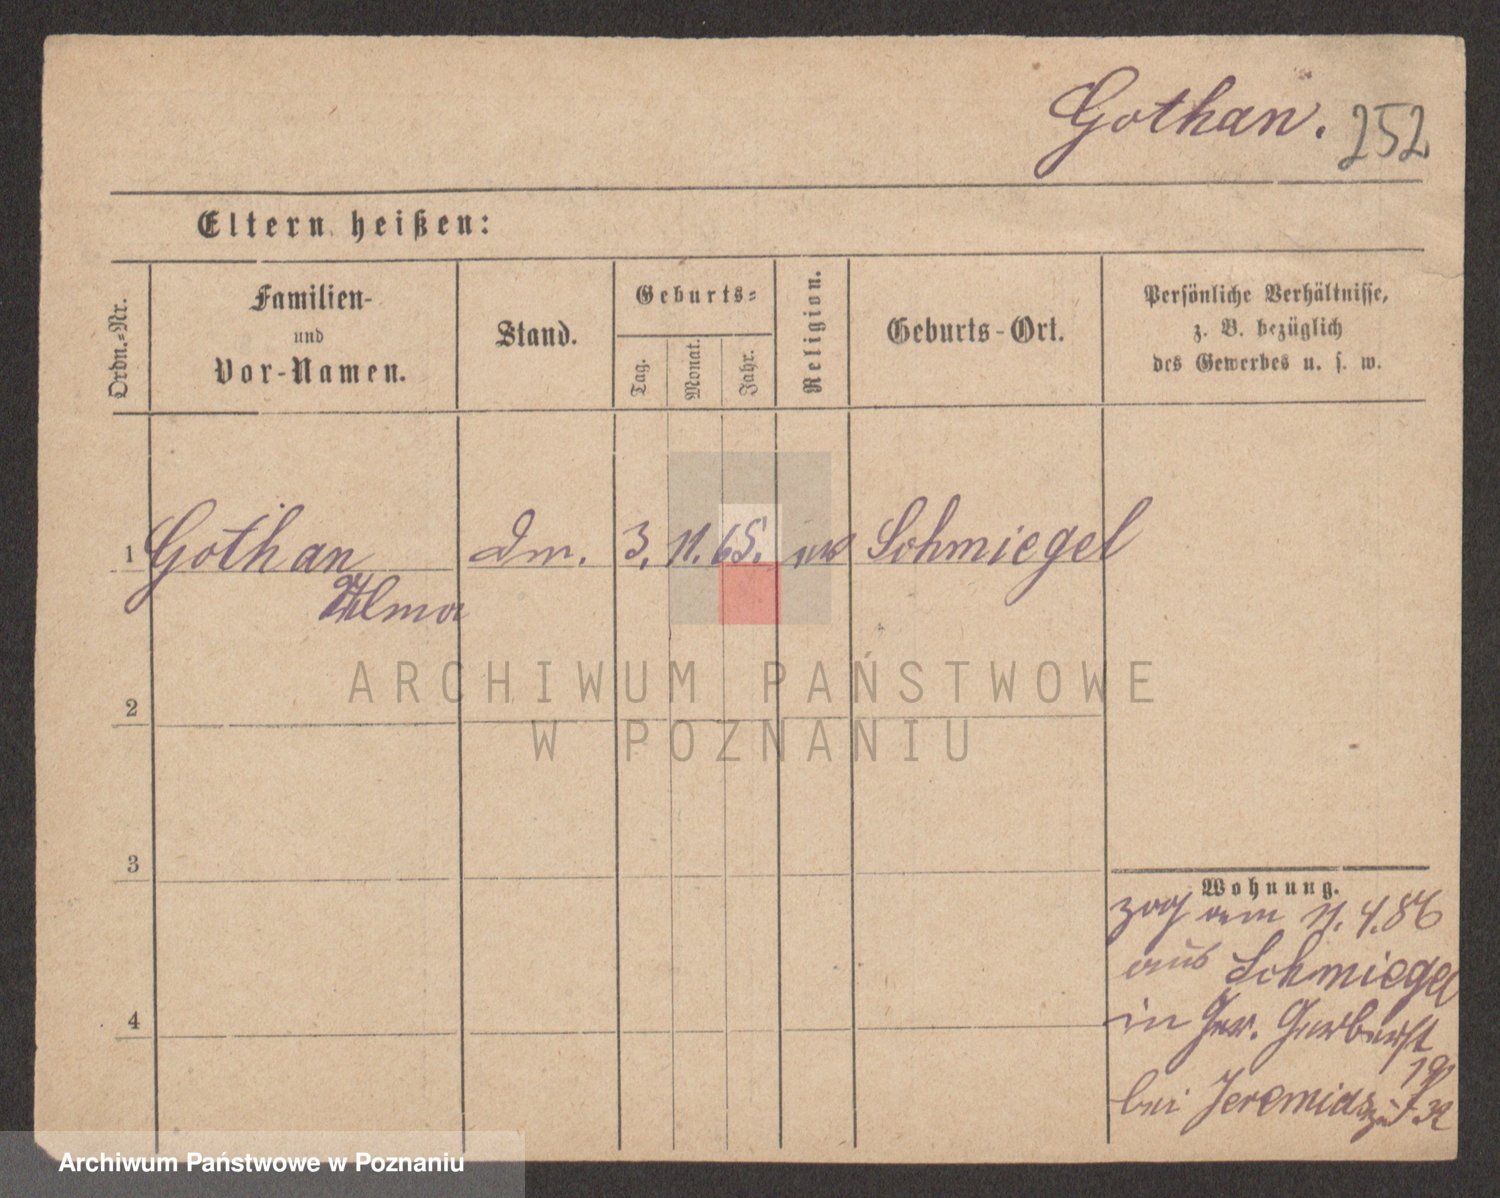 Gothan. 252
Eltern heißen:
Ordn.-Nr.
Familien-
und
Vor-Namen.
Stand.
Geburts-
Tag.
Monat.
Jahr.
Religion.
Geburts-Ort.
Persönliche Verhältnisse,
z. B. bezüglich
des Gewerbes u. s. w.
1 Gothan dm. 3. 11. 65. Schmiegel
Alma
ARCHIWUM PAŃSTWOWE
W POZNANIU
2
3
4
Wohnung.
zog am 11. 4. 86
aus Schmiegel
in Gr. Gerberst
19
bei Jeremias
Archiwum Państwowe w Poznaniu